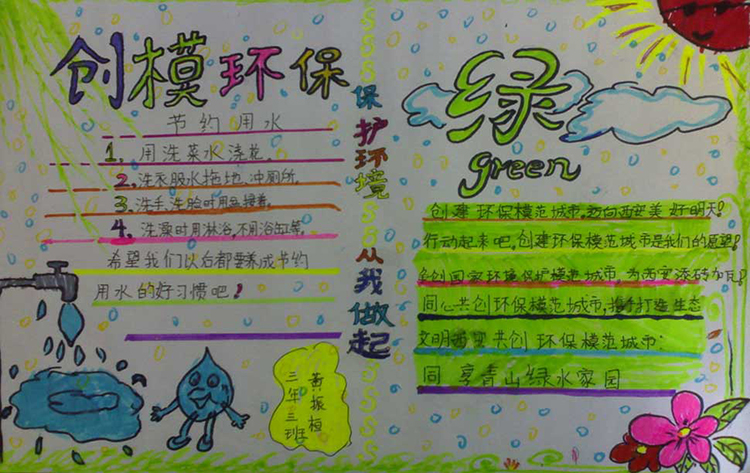 创模环保
节约用水
1、用洗菜水浇花。
2、洗衣服水拖地、冲厕所。
3、洗手、洗脸时用盆接着。
4、洗澡时用淋浴,不用浴缸等。
希望我们以后都要养成节约
用水的好习惯吧!
三年三班
黄振桓
保护环境 从我做起
绿
green
创建环保模范城市,迈向西安美好明天!
行动起来吧,创建环保模范城市是我们的愿望!
争创国家环境保护模范城市,为西安添砖加瓦!
同心共创环保模范城市,携手打造生态
文明西安 共创 环保模范城市:
同享青山绿水家园